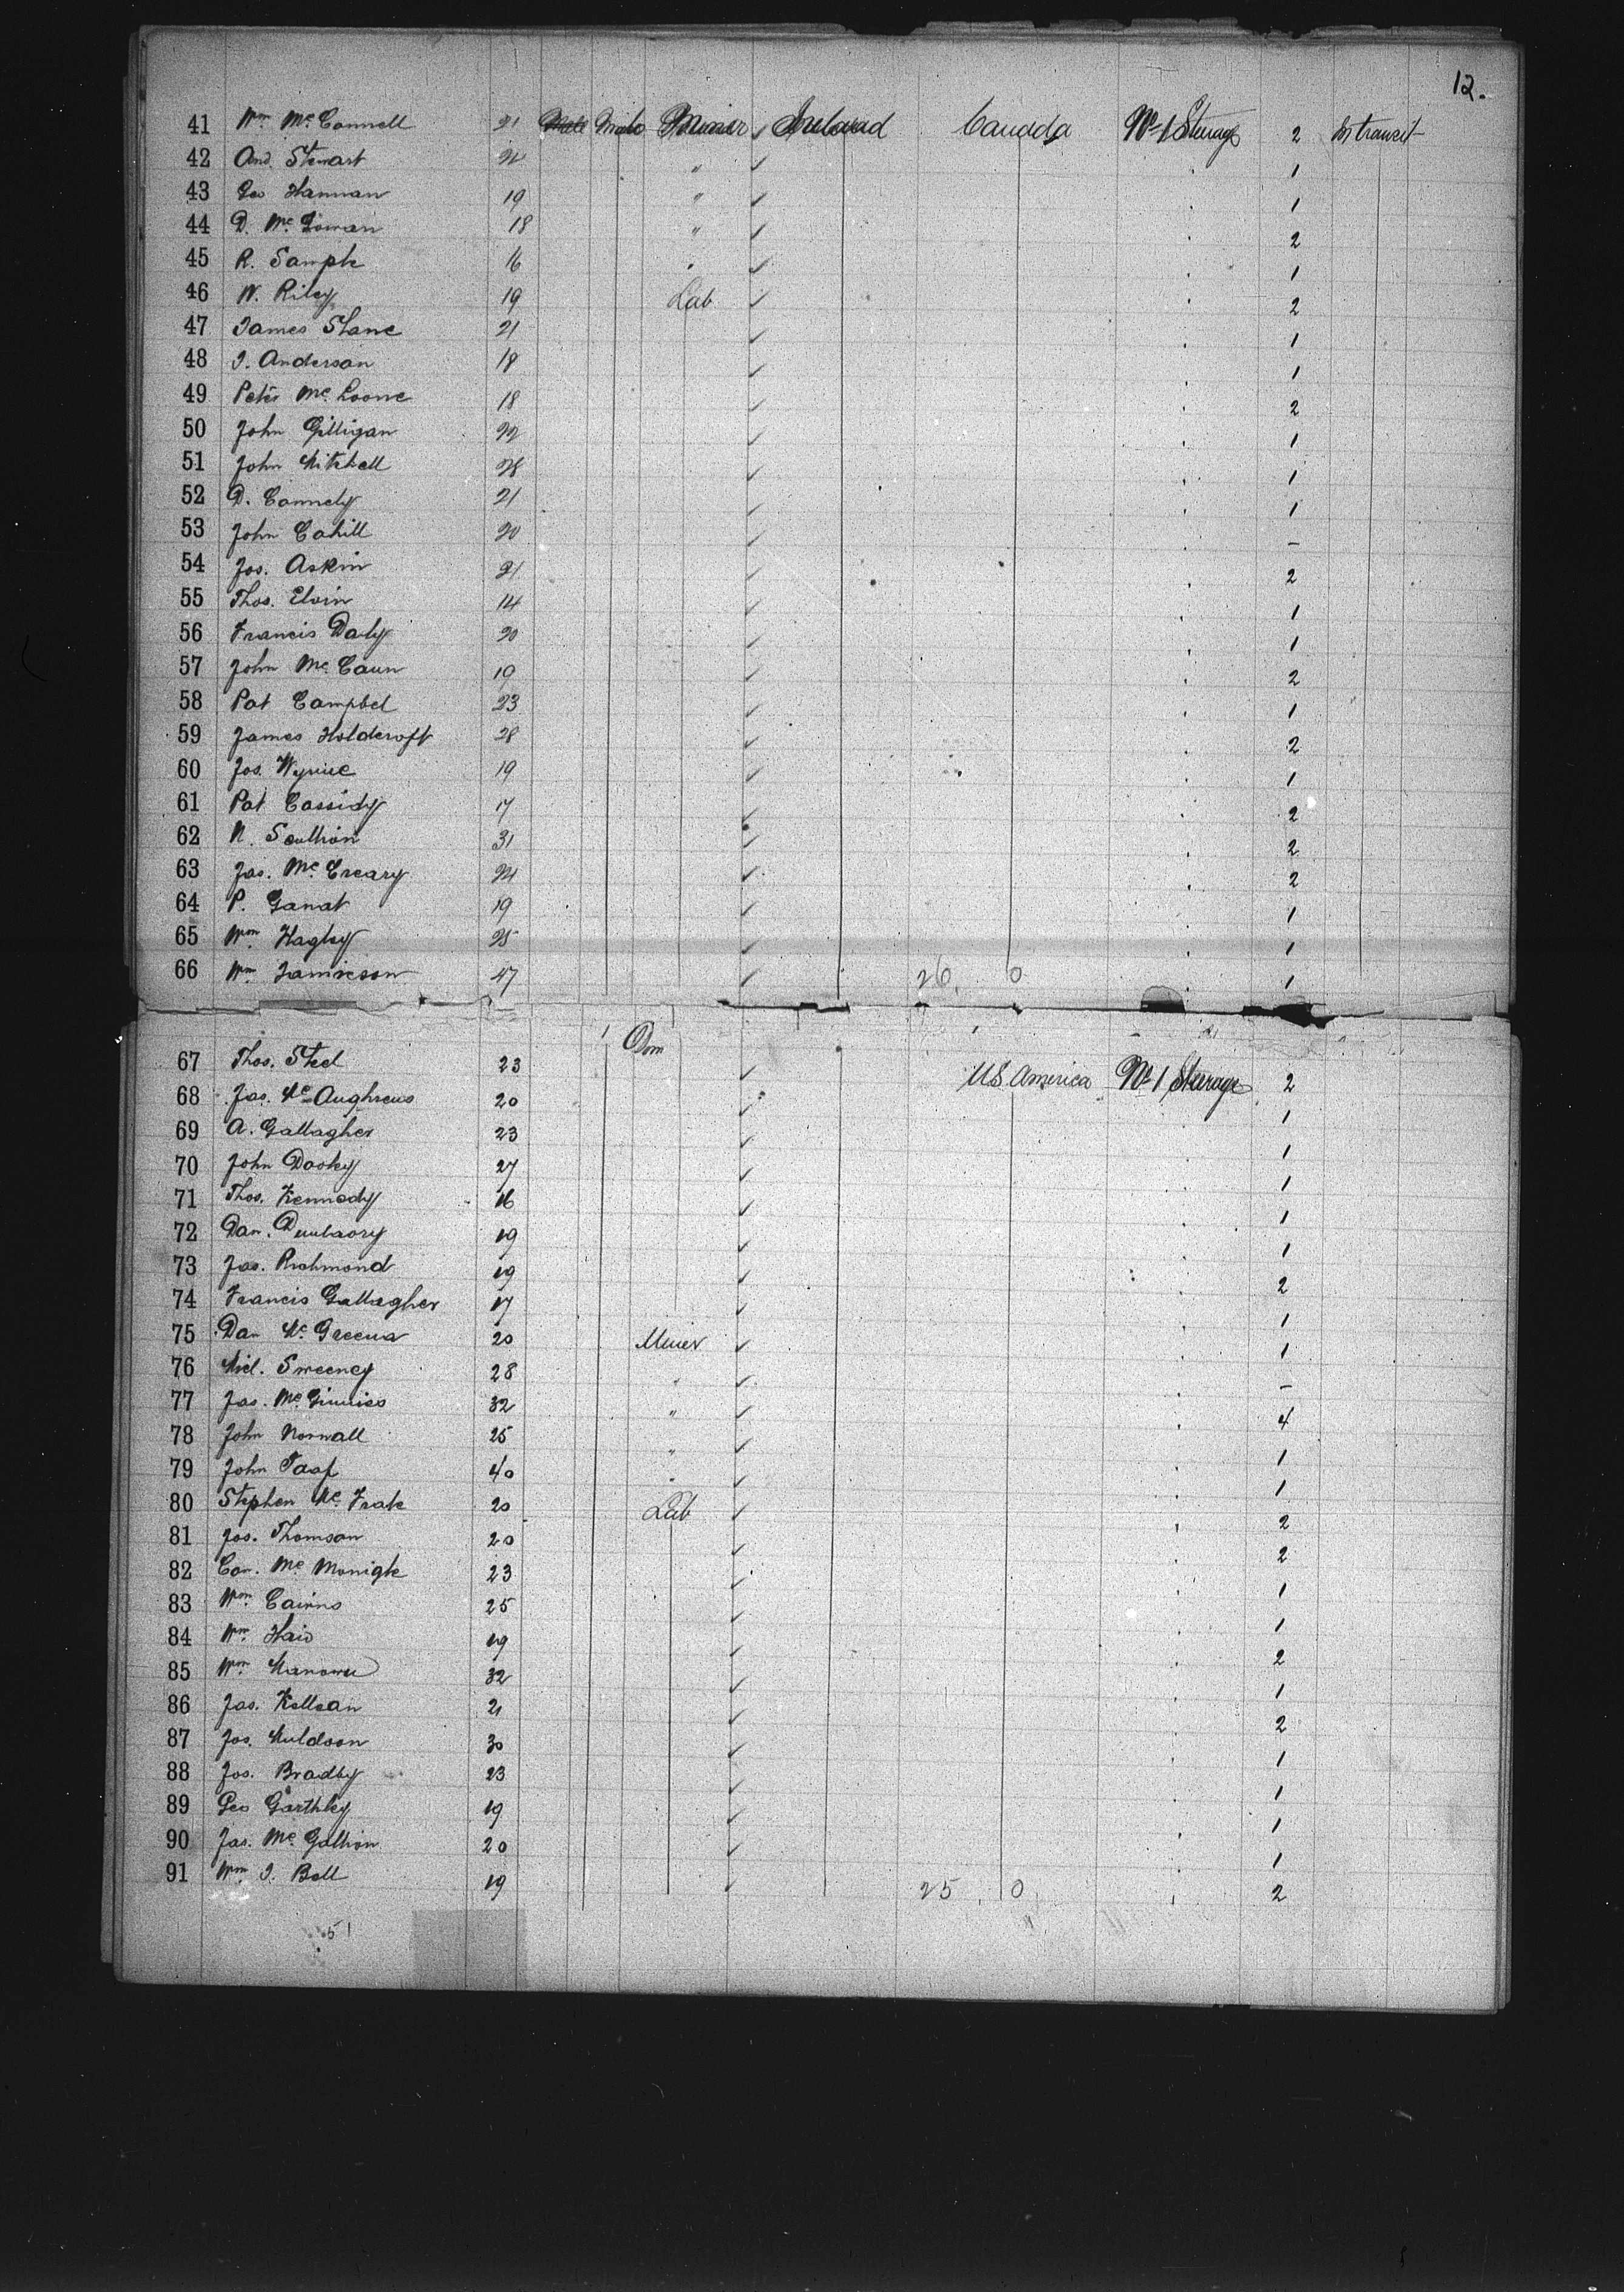 12.
41 Wm Mc Connell 21 Male Male Miner Ireland Canada No 1 Steerage 2 In transit
42 And. Stewart " 1
43 Geo Hannan 19 " 1
44 D. Mc Gowan 18 " 2
45 R. Sample 16 " 1
46 W. Riley 19 Lab 2
47 James Slane 21 1
48 J. Anderson 18 1
49 Peter Mc Loone 18 2
50 John Gilligan 22 1
51 John Mitchell 28 1
52 D. Connely 21 1
53 John Cahill 20 –
54 Jos. Askin 21 2
55 Thos. Elvin 14 1
56 Francis Daly 20 1
57 John Mc Caun 19 2
58 Pat Campbel 23 1
59 James Holdcroft 28 2
60 Jos. Wynne 19 1
61 Pat Cassidy 17 2
62 N. Scullion 31 2
63 Jas. Mc Creary 24 2
64 P. Ganat 19 1
65 Wm Hagley 25 1
66 Wm Jamieson 47 26. 0 1
67 Thos. Steel 23 Dom US. America No 1 Steerage 2
68 Jas. Mc 20 1
69 A. Gallagher 23 1
70 John Dooley 27 1
71 Thos. Kennedy 16 1
72 Dan. 19 1
73 Jas. Richmond 19 2
74 Francis Gallagher 17 1
75 Dan Mc Greena 20 Miner 1
76 Mich. Sweeney 28 " –
77 Jas. Mc Ginniss 32 " 4
78 John Normall 25 " 1
79 John Taaf 40 " 1
80 Stephen Mc 20 Lab 2
81 Jos. Thomson 20 2
82 Con. Mc Monigle 23 1
83 Wm Cairns 25 1
84 Wm 19 2
85 Wm 32 1
86 Jas. Kellean 21 2
87 Jos. Muldoon 30 1
88 Jos. Bradley 23 1
89 Geo Garthley 19 1
90 Jas. Mc Gallion 20 1
91 Wm J. Bell 19 25. 0 2
51